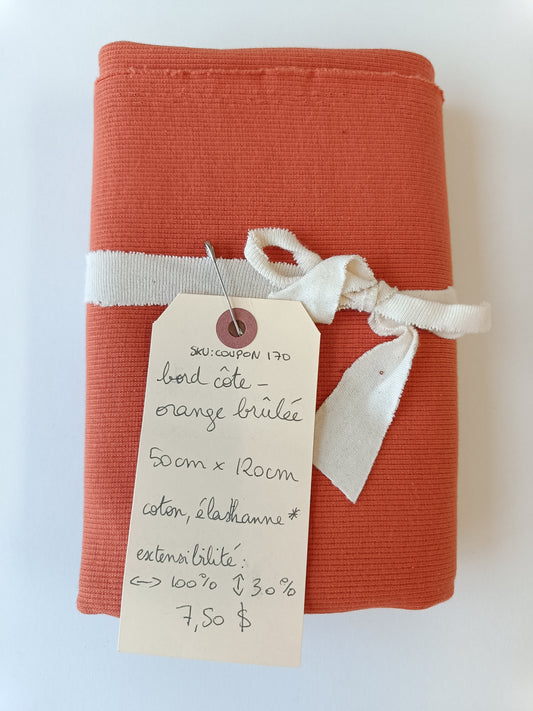 SKU:COUPON 170
bord côte -
orange brûlée
50cm x 120cm
coton, élasthanne*
extensibilité:
<-> 100% ↕ 30%
7,50 $